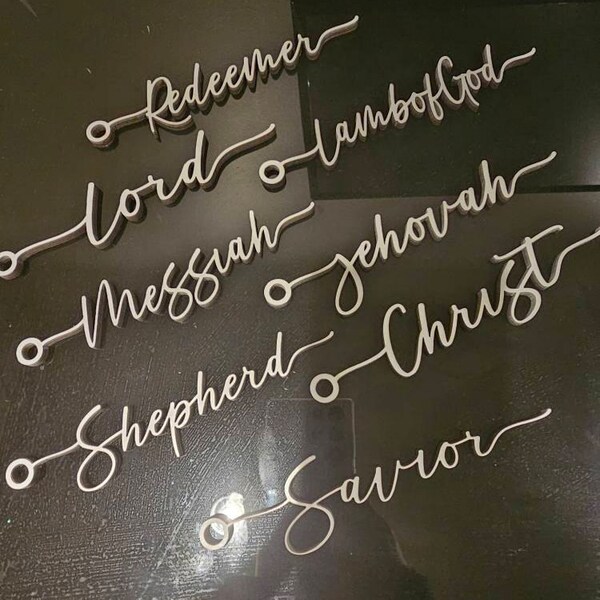 Redeemer
LambofGod
Lord
Jehovah
Messiah
Christ
Shepherd
Savior